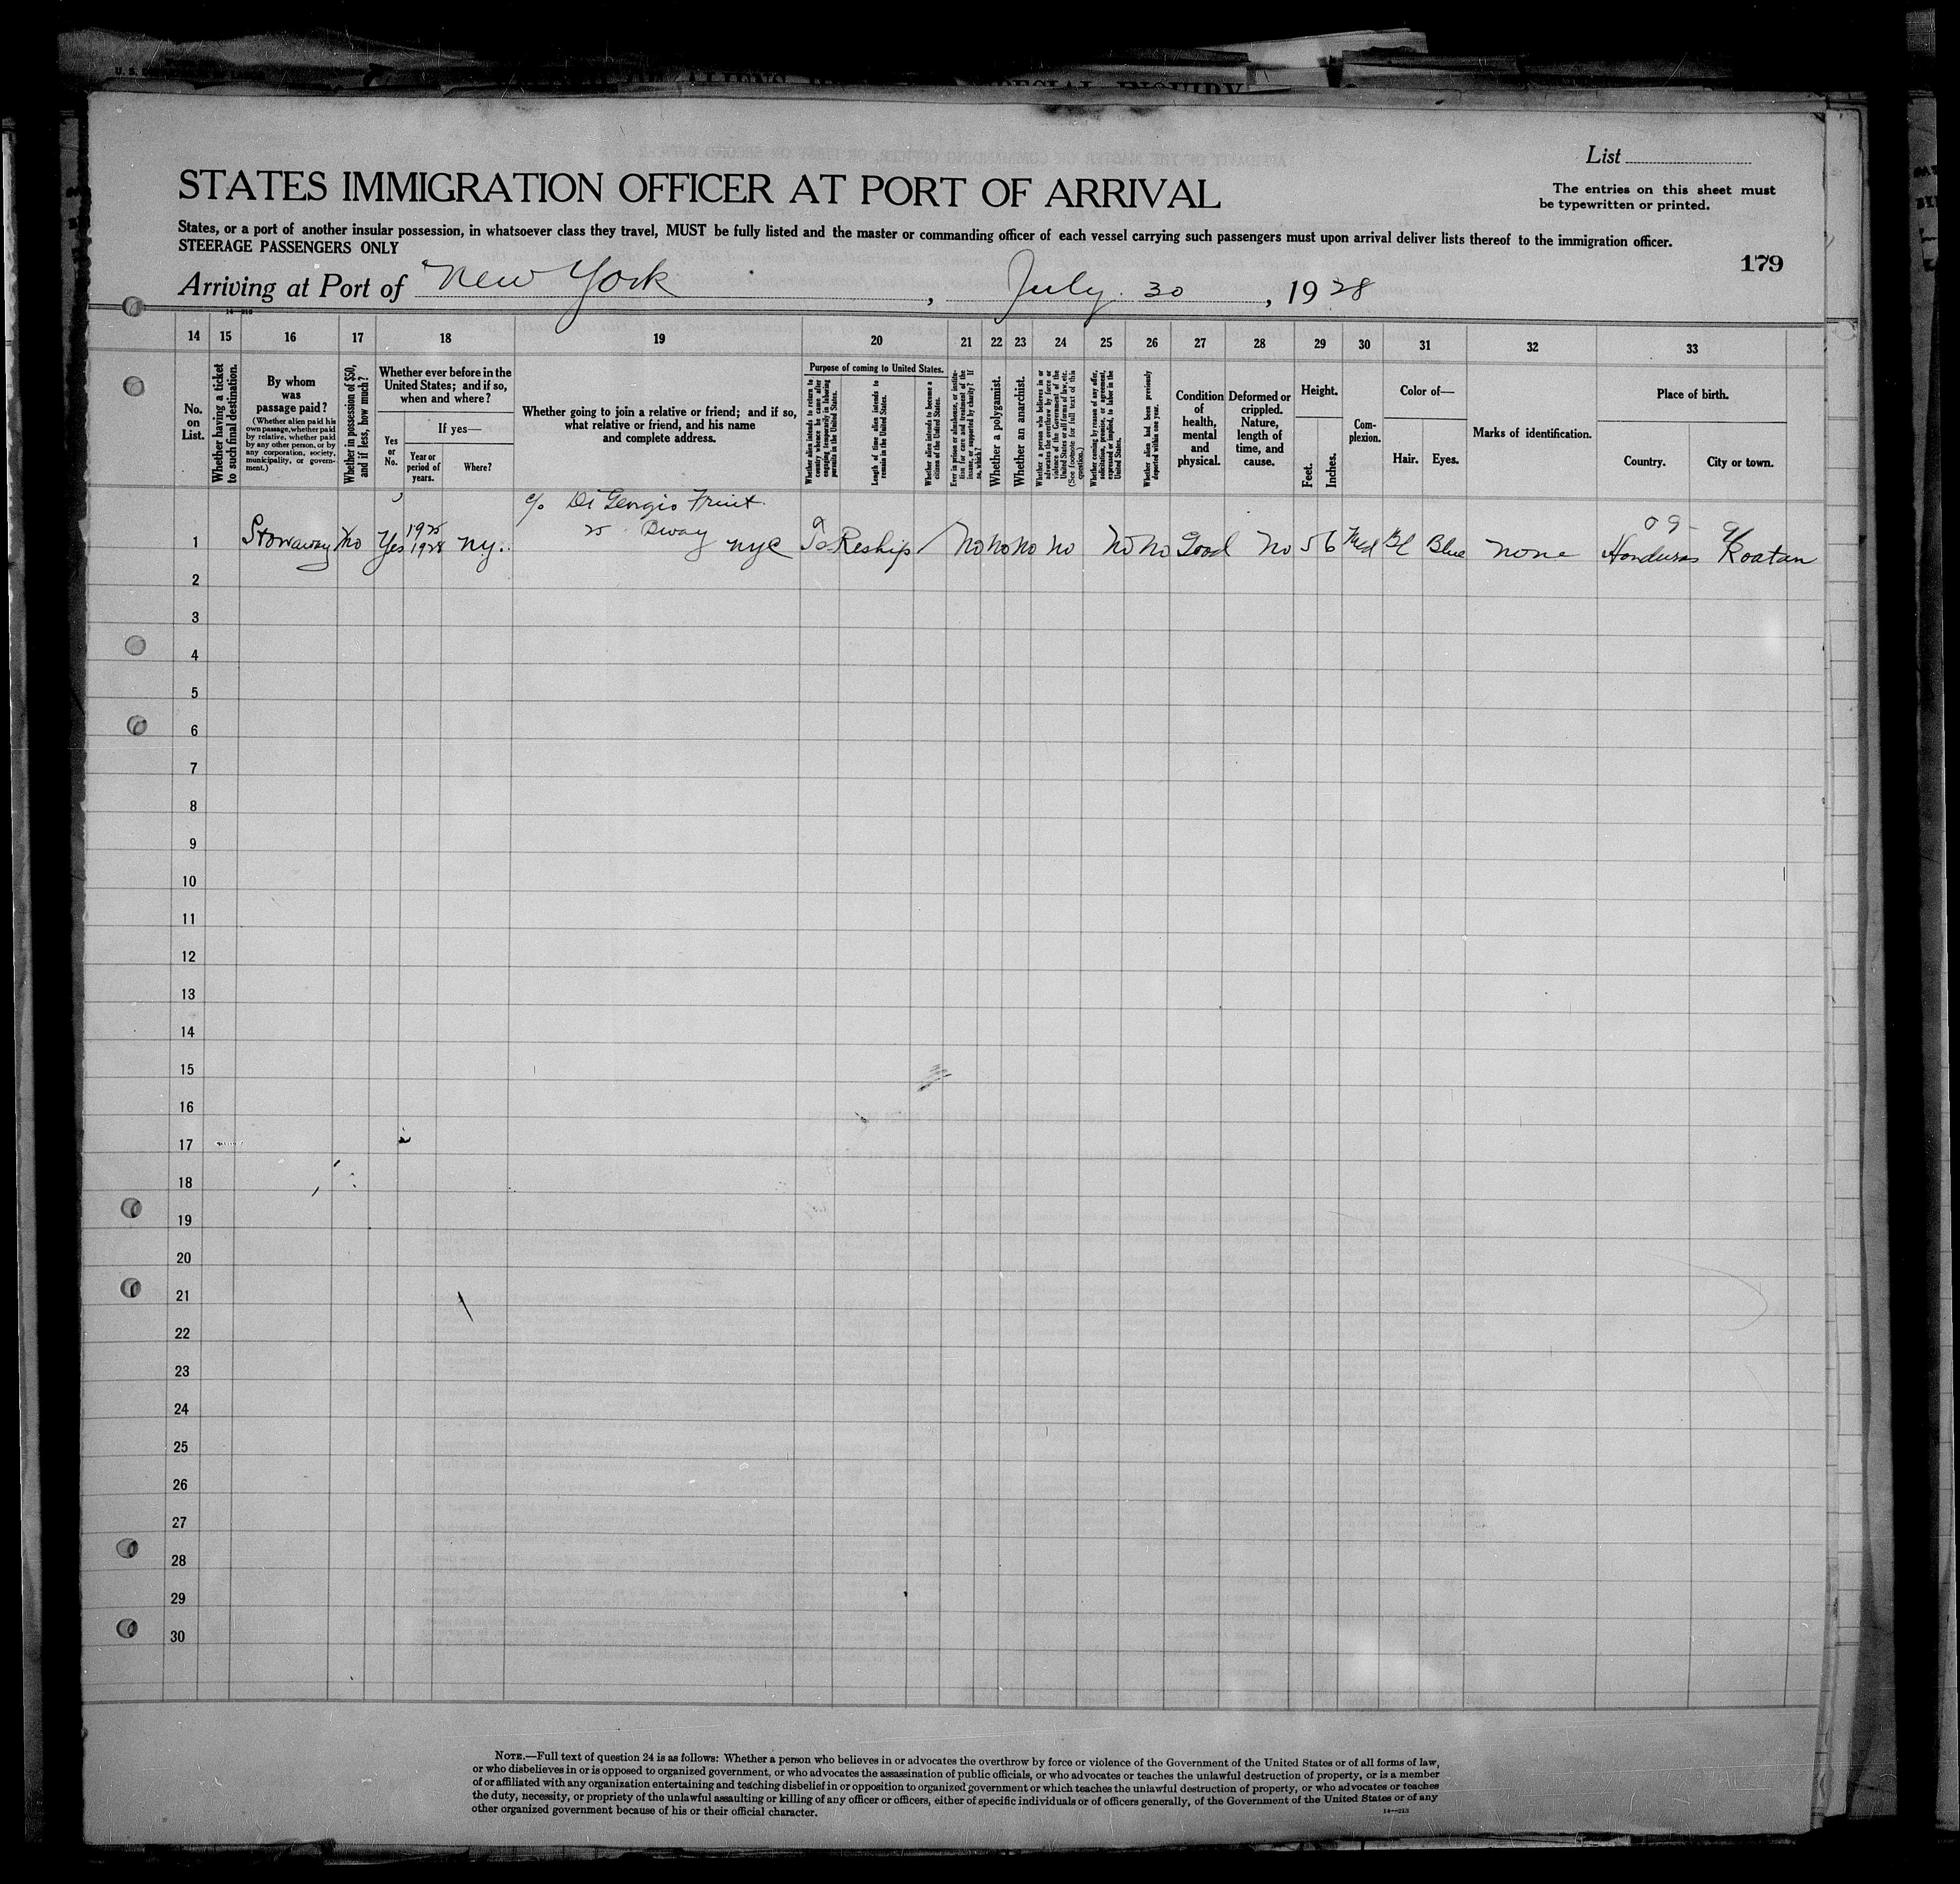 ALIENS SPECIAL INQUIRY
List
STATES IMMIGRATION OFFICER AT PORT OF ARRIVAL
The entries on this sheet must
be typewritten or printed.
States, or a port of another insular possession, in whatsoever class they travel, MUST be fully listed and the master or commanding officer of each vessel carrying such passengers must upon arrival deliver lists thereof to the immigration officer.
STEERAGE PASSENGERS ONLY
179
Arriving at Port of New York, July 30, 1928
14 15 16 17 18 19 20 21 22 23 24 25 26 27 28 29 30 31 32 33
No.
on
List.
Whether having a ticket
to such final destination.
By whom
was
passage paid?
(Whether alien paid his
own passage, whether paid
by relative, whether paid
by any other person, or by
any corporation, society,
municipality, or govern-
ment.)
Whether in possession of $50,
and if less, how much?
Whether ever before in the
United States; and if so,
when and where?
Yes
or
No.
If yes—
Year or
period of
years.
Where?
Whether going to join a relative or friend; and if so,
what relative or friend, and his name
and complete address.
Purpose of coming to United States.
Whether alien intends to return to
country whence he came after
engaging temporarily in laboring
pursuits in the United States.
Length of time alien intends to
remain in the United States.
Whether alien intends to become a
citizen of the United States.
Ever in prison or almshouse, or institu-
tion for care and treatment of the
insane, or supported by charity? If
so, which?
Whether a polygamist.
Whether an anarchist.
Whether a person who believes in or
advocates the overthrow by force or
violence of the Government of the
United States or all forms of law, etc.
(See footnote for full text of this
question.)
Whether coming by reason of any offer,
solicitation, promise, or agreement,
expressed or implied, to labor in the
United States.
Whether alien had been previously
deported within one year.
Condition
of
health,
mental
and
physical.
Deformed or
crippled.
Nature,
length of
time, and
cause.
Height.
Feet.
Inches.
Com-
plexion.
Color of—
Hair. Eyes.
Marks of identification.
Place of birth.
Country. City or town.
c/o Di Georgio Fruit
1925 25 Bway 09-
1 Stowaway No Yes 1928 N.Y. NYC To Reship No No No No No No Good No 5 6 Med Bl Blue None Honduras Roatan
2
3
4
5
6
7
8
9
10
11
12
13
14
15
16
17
18
19
20
21
22
23
24
25
26
27
28
29
30
NOTE.—Full text of question 24 is as follows: Whether a person who believes in or advocates the overthrow by force or violence of the Government of the United States or of all forms of law,
or who disbelieves in or is opposed to organized government, or who advocates the assassination of public officials, or who advocates or teaches the unlawful destruction of property, or is a member
of or affiliated with any organization entertaining and teaching disbelief in or opposition to organized government or which teaches the unlawful destruction of property, or who advocates or teaches
the duty, necessity, or propriety of the unlawful assaulting or killing of any officer or officers, either of specific individuals or of officers generally, of the Government of the United States or of any
other organized government because of his or their official character.
14—213